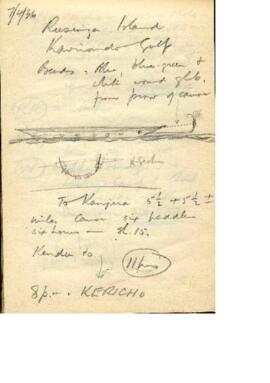 7/4/36
Rusinga Island
Kavirondo Gulf
Beads. Blue, blue-green &
white round
from prow of canoe
Section
To Kanjira 5½ + 5½ ±
miles Canoe six paddlers
six hours — sh. 15.
Kendu to
11 hrs
8 p.m. KERICHO